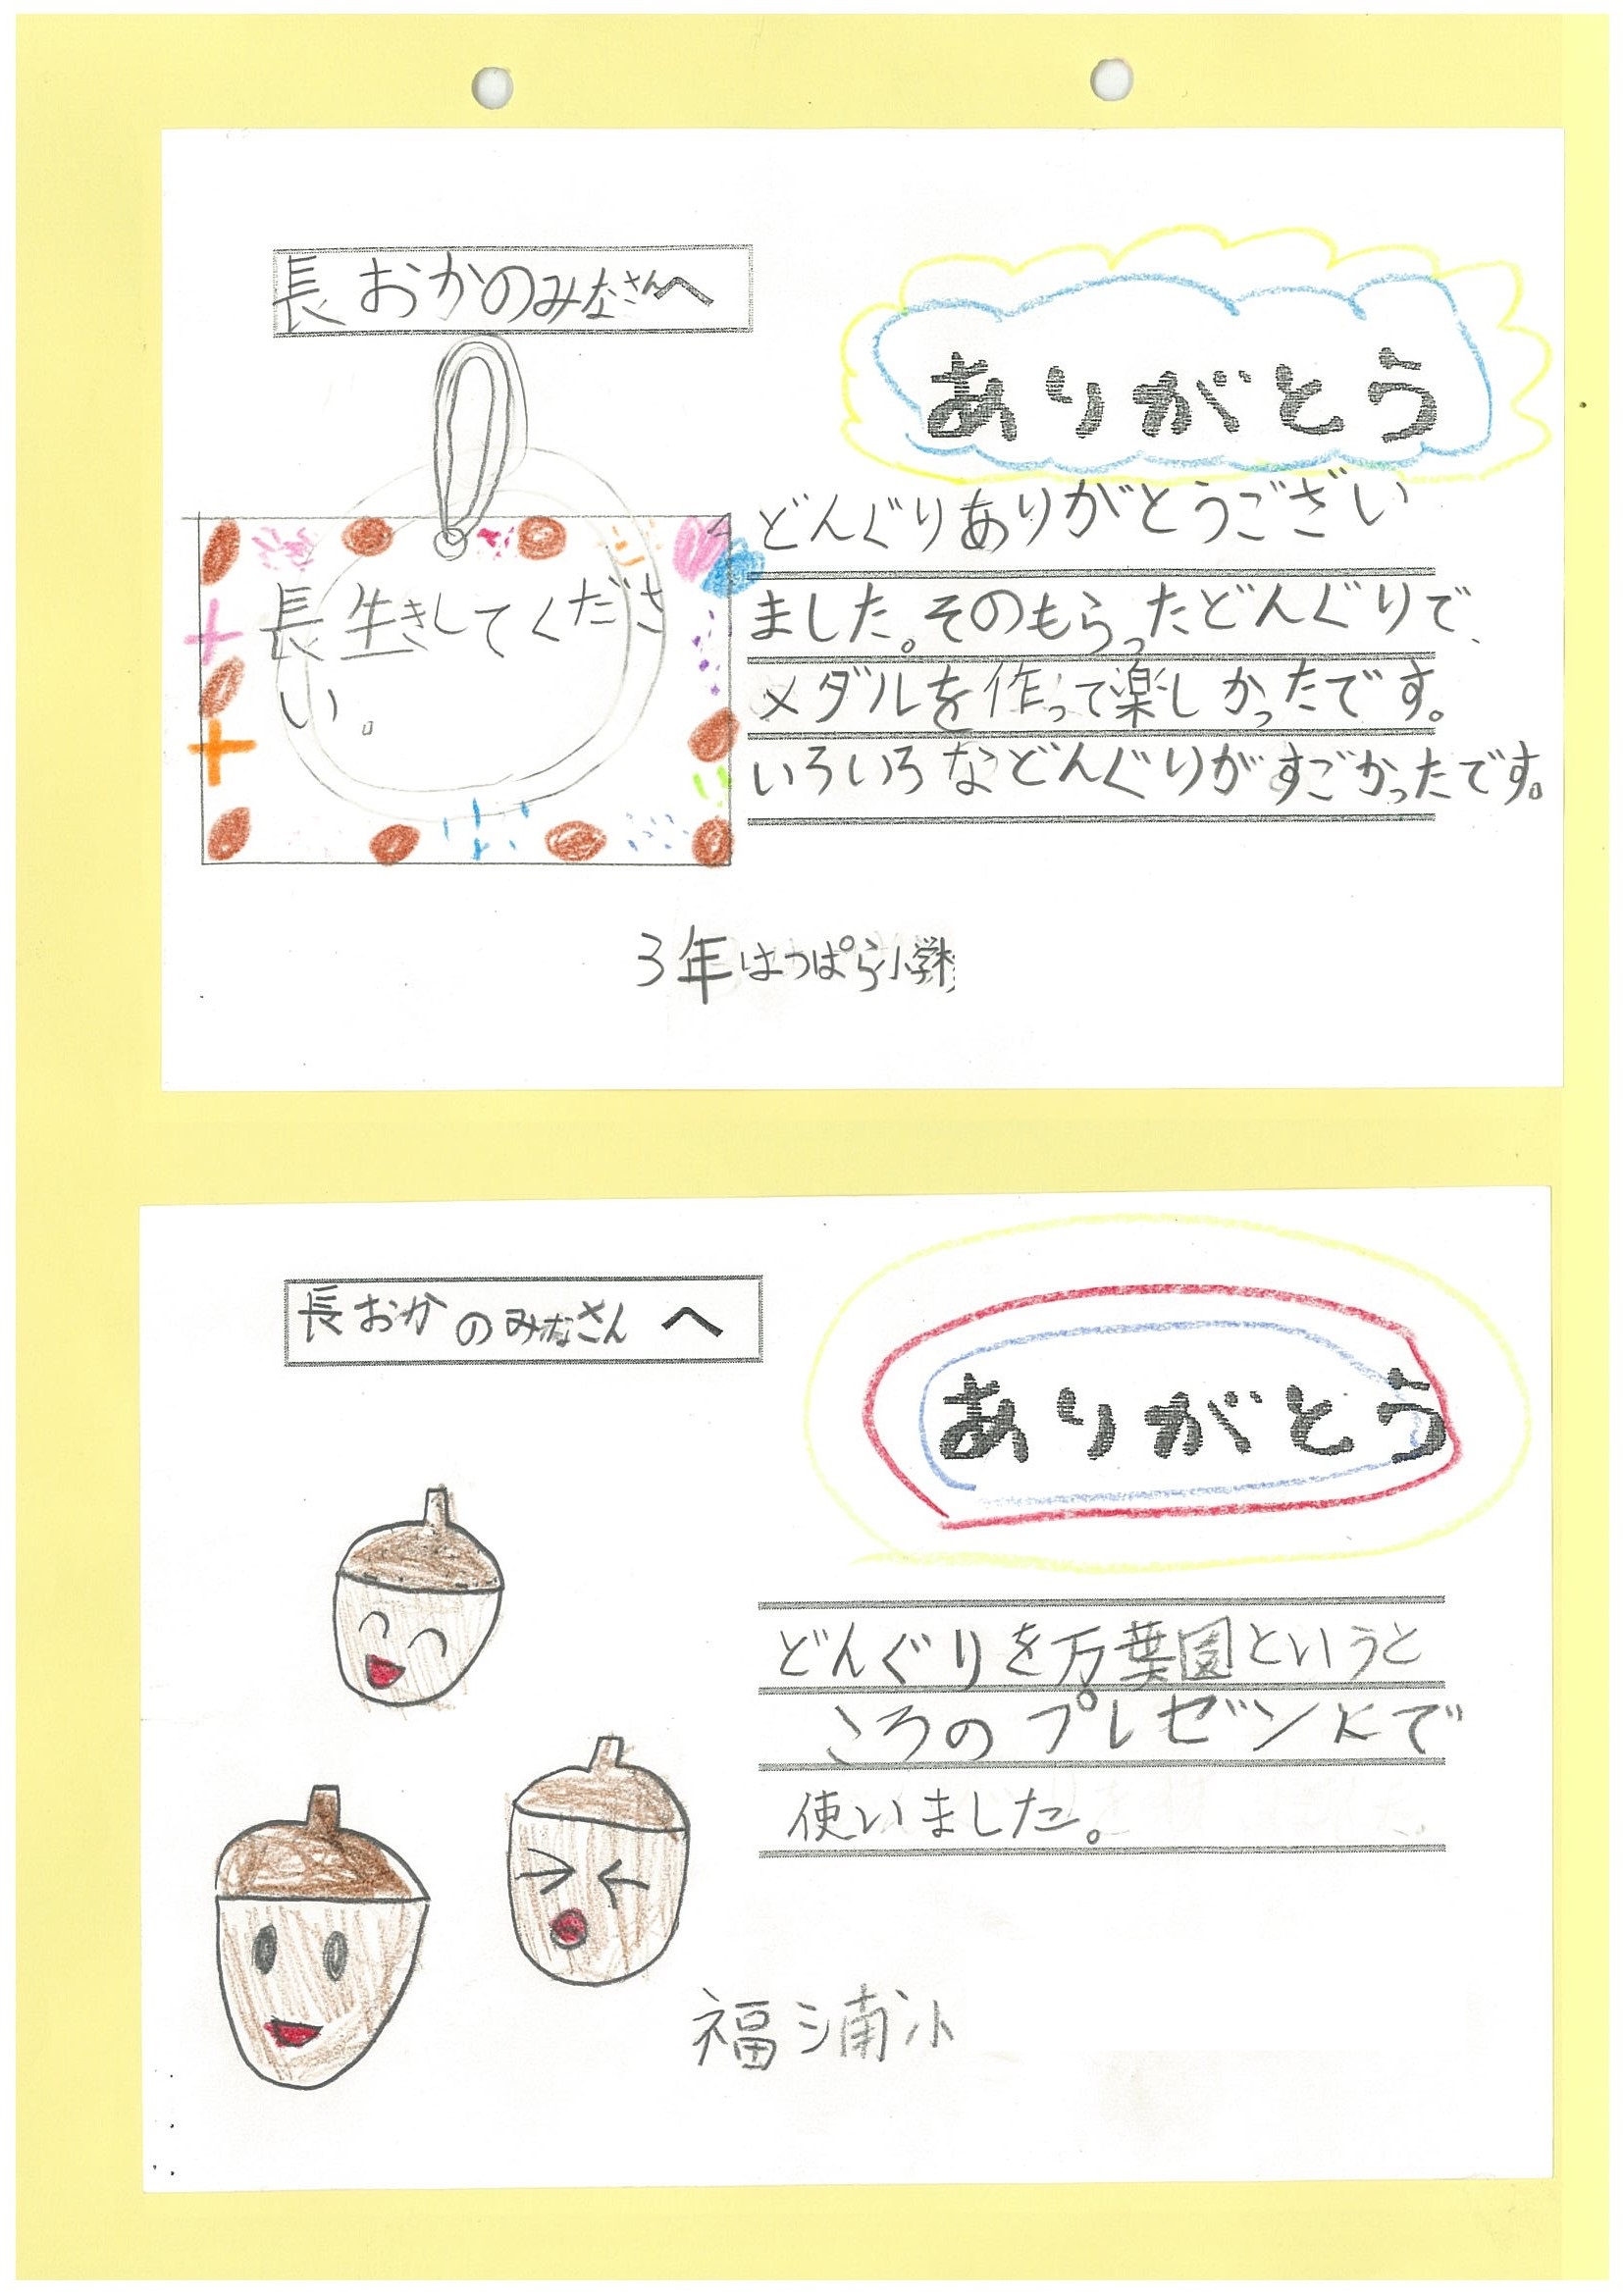 長おかのみなさんへ
ありがとう
どんぐりありがとうござい
ました。そのもらったどんぐりで、
メダルを作って楽しかったです。
いろいろなどんぐりがすごかったです。
長生きしてくださ
い。
3年はっぱら小学校
長おかのみなさんへ
ありがとう
どんぐりを万葉園というと
ころのプレゼントで
使いました。
福浦小